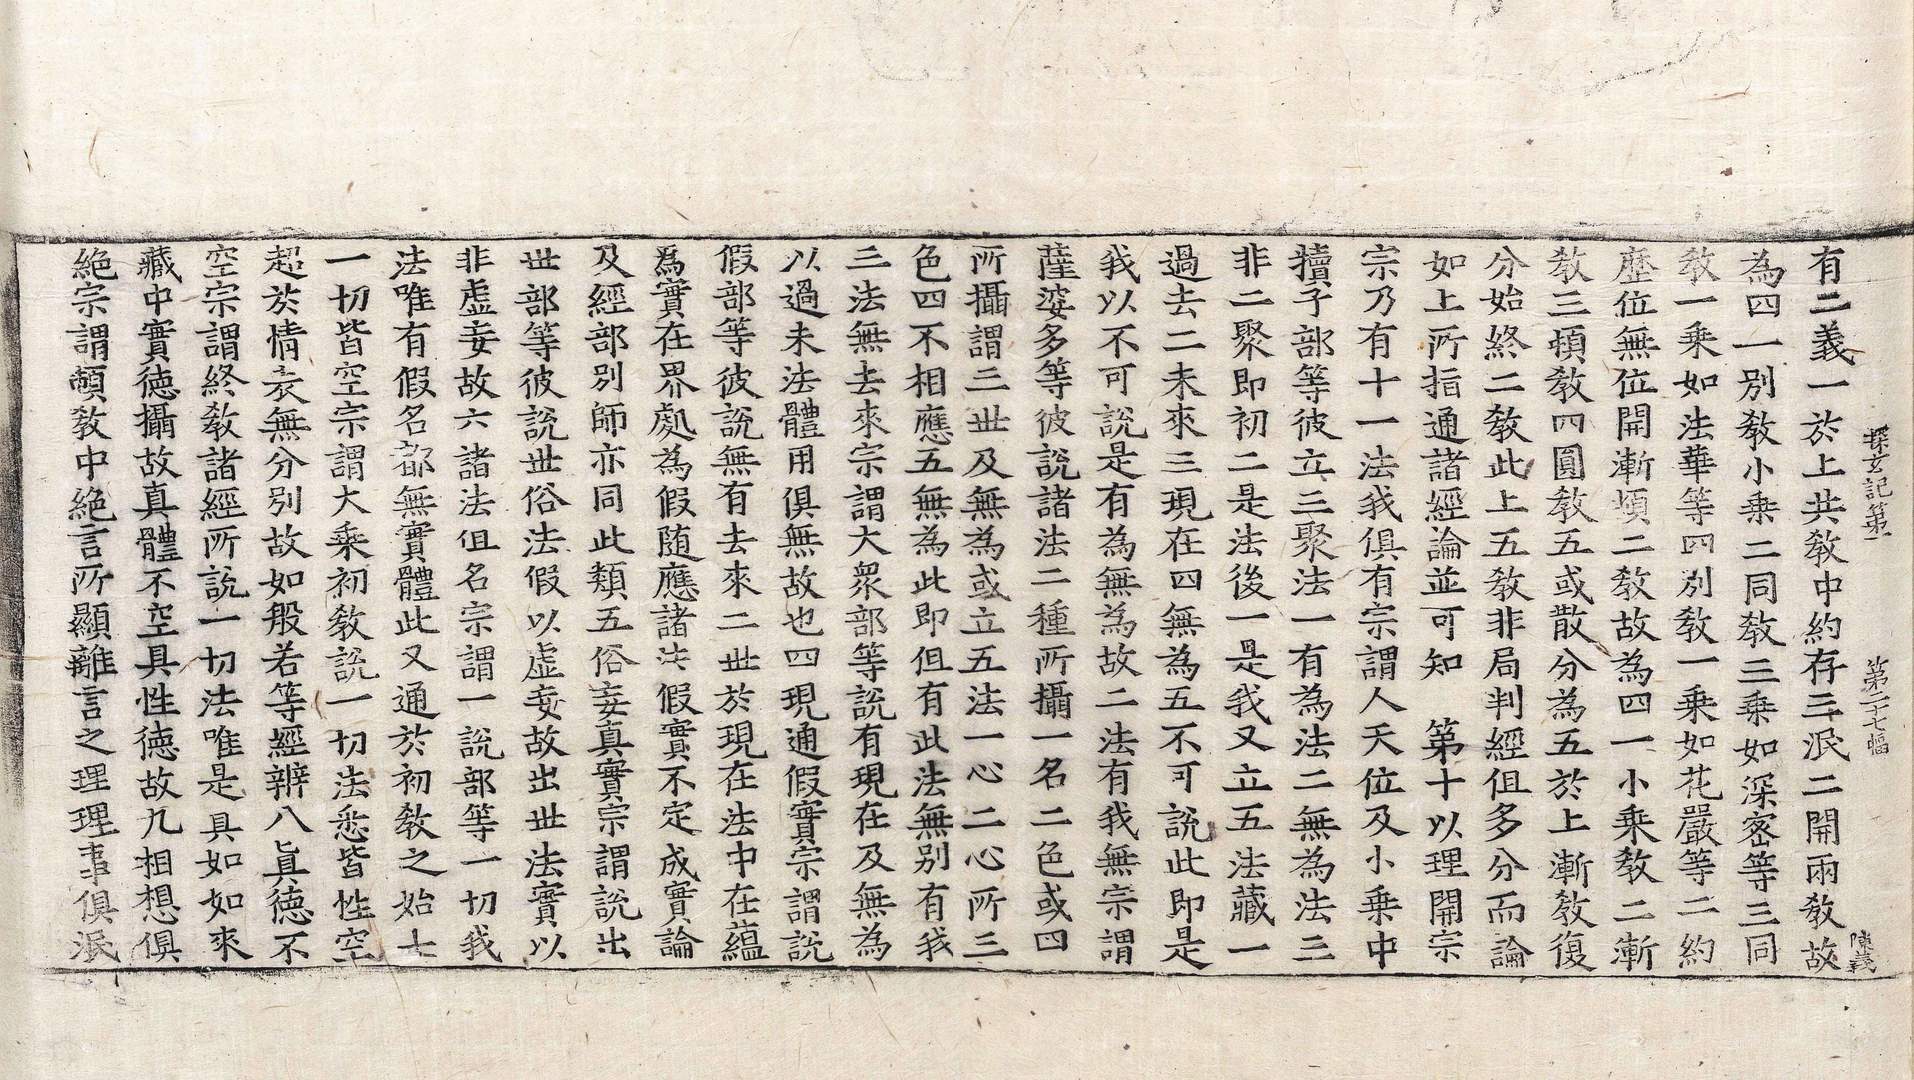 探玄記第一　第二十七幅　陳義
有二義一於上共教中約存三泯二開兩教故
為四一別教小乘二同教三乘如深密等三同
教一乘如法華等四別教一乘如花嚴等二約
歷位無位開漸頓二教故為四一小乘教二漸
教三頓教四圓教五或散分為五於上漸教復
分始終二教此上五教非局判經但多分而論
如上所指通諸經論並可知　第十以理開宗
宗乃有十一法我俱有宗謂人天位及小乘中
犢子部等彼立三聚法一有為法二無為法三
非二聚即初二是法後一是我又立五法藏一
過去二未來三現在四無為五不可說此即是
我以不可說是有為無為故二法有我無宗謂
薩婆多等彼說諸法二種所攝一名二色或四
所攝謂三世及無為或立五法一心二心所三
色四不相應五無為此即但有此法無別有我
三法無去來宗謂大眾部等說有現在及無為
以過未法體用俱無故也四現通假實宗謂說
假部等彼說無有去來二世於現在法中在蘊
爲實在界處為假随應諸法假實不定成實論
及經部別師亦同此類五俗妄真實宗謂說出
世部等彼說世俗法假以虛妄故出世法實以
非虛妄故六諸法但名宗謂一說部等一切我
法唯有假名都無實體此又通於初教之始七
一切皆空宗謂大乘初教說一切法悉皆性空
超於情表無分別故如般若等經辨八眞德不
空宗謂終教諸經所說一切法唯是具如如來
藏中實德攝故真體不空具性德故九相想俱
絕宗謂頓教中絕言所顯離言之理理事俱泯